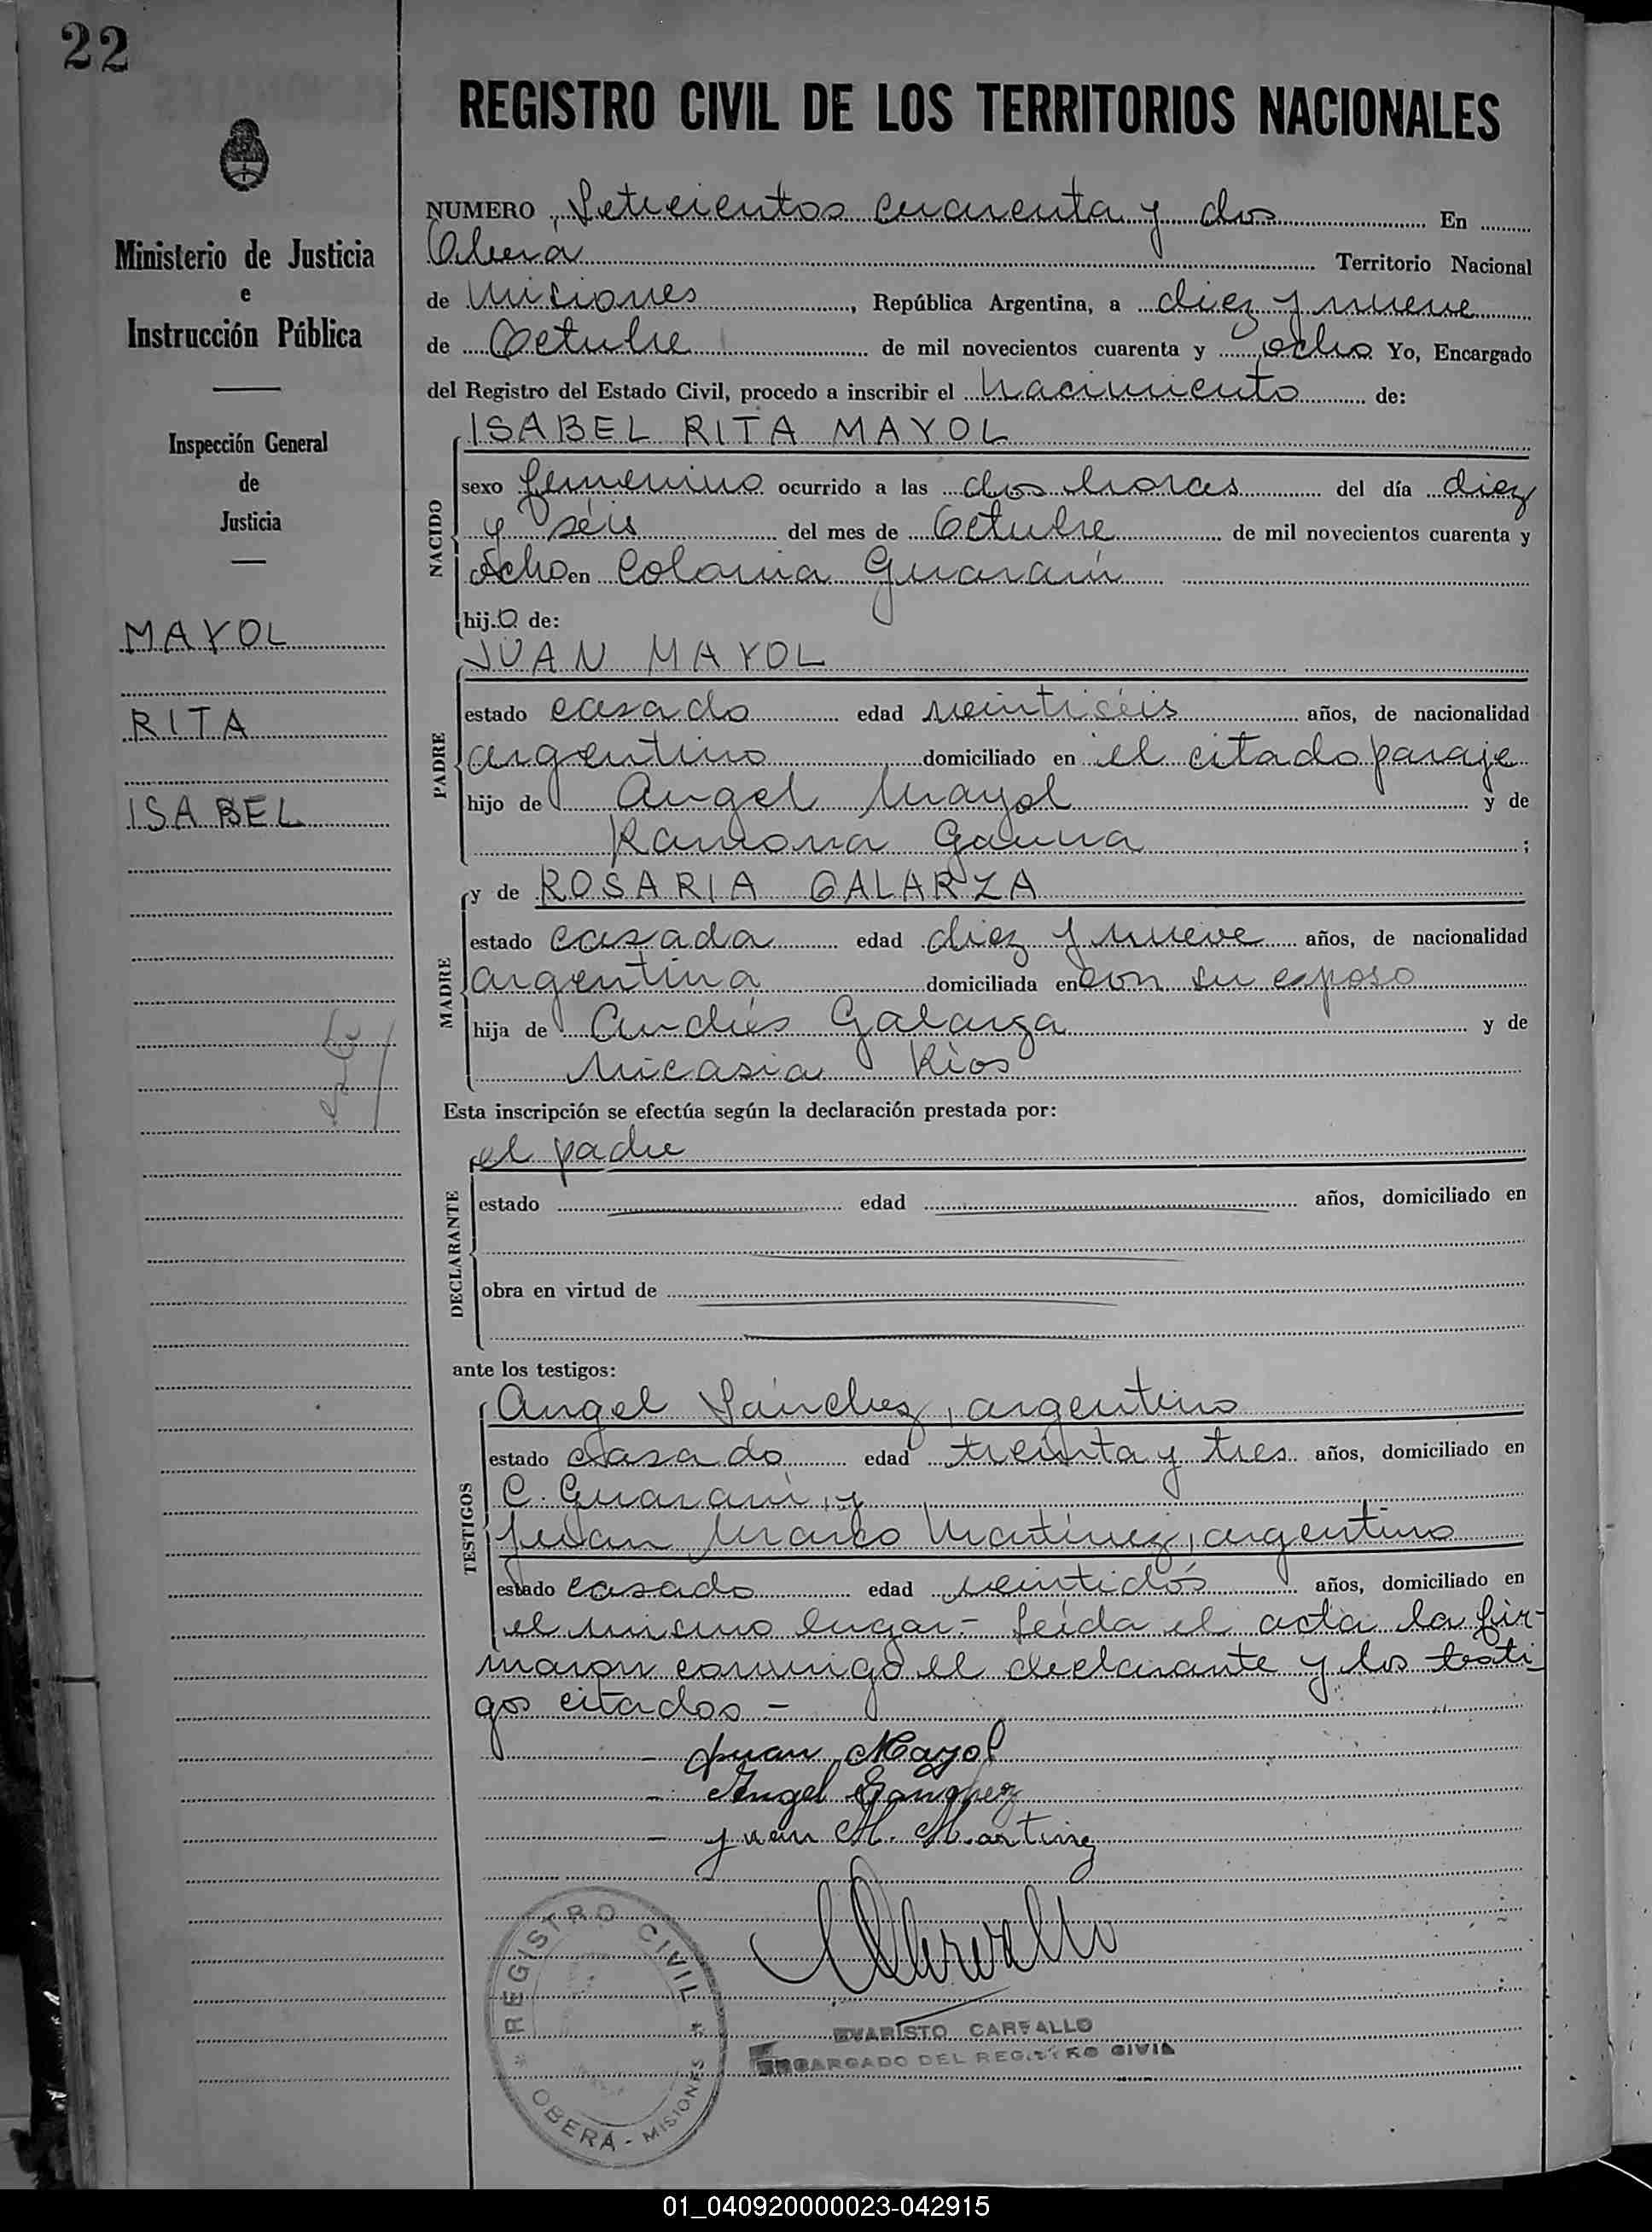 22
REGISTRO CIVIL DE LOS TERRITORIOS NACIONALES
Ministerio de Justicia
e
Instrucción Pública
Inspección General
de
Justicia
MAYOL
RITA
ISABEL
NUMERO Setecientos cuarenta y dos En
Obera Territorio Nacional
de Misiones, República Argentina, a diez y nueve
de Octubre de mil novecientos cuarenta y ocho Yo, Encargado
del Registro del Estado Civil, procedo a inscribir el nacimiento de:
NACIDO
ISABEL RITA MAYOL
sexo femenino ocurrido a las dos horas del día diez
y séis del mes de Octubre de mil novecientos cuarenta y
ocho en Colonia Guaraní
hija de:
PADRE
JUAN MAYOL
estado casado edad veintiséis años, de nacionalidad
argentino domiciliado en el citado paraje
hijo de Angel Mayol y de
Ramona Gauna ;
MADRE
y de ROSARIA GALARZA
estado casada edad diez y nueve años, de nacionalidad
argentina domiciliada en con su esposo
hija de Andrés Galarza y de
Nicasia Ríos
Esta inscripción se efectúa según la declaración prestada por:
DECLARANTE
el padre
estado edad años, domiciliado en
obra en virtud de
ante los testigos:
TESTIGOS
Angel Sánchez, argentino
estado casado edad treinta y tres años, domiciliado en
C. Guaraní, y
Juan Marco Martínez, argentino
estado casado edad veintidós años, domiciliado en
el mismo lugar.- Leída el acta la fir-
maron conmigo el declarante y los testi-
gos citados -
- Juan Mayol
- Angel Sanchez
- Juan M. Martinez
REGISTRO CIVIL
* OBERÁ - MISIONES *
EVARISTO CARVALLO
ENCARGADO DEL REGISTRO CIVIL
01_040920000023-042915